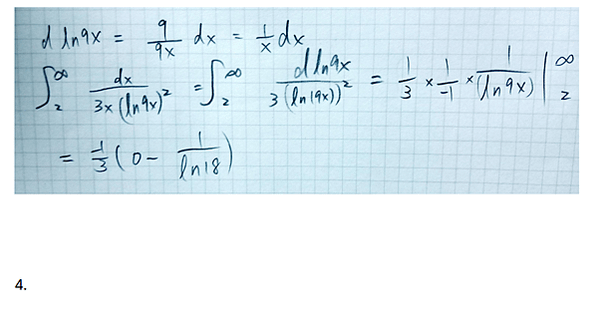 d ln9x = 9/9x dx = 1/x dx
∫₂^∞ dx/3x(ln9x)² = ∫₂^∞ d ln9x/3(ln(9x))² = 1/3 × 1/-1 × 1/(ln9x) |₂^∞
= -1/3 (0 - 1/ln18)
4.